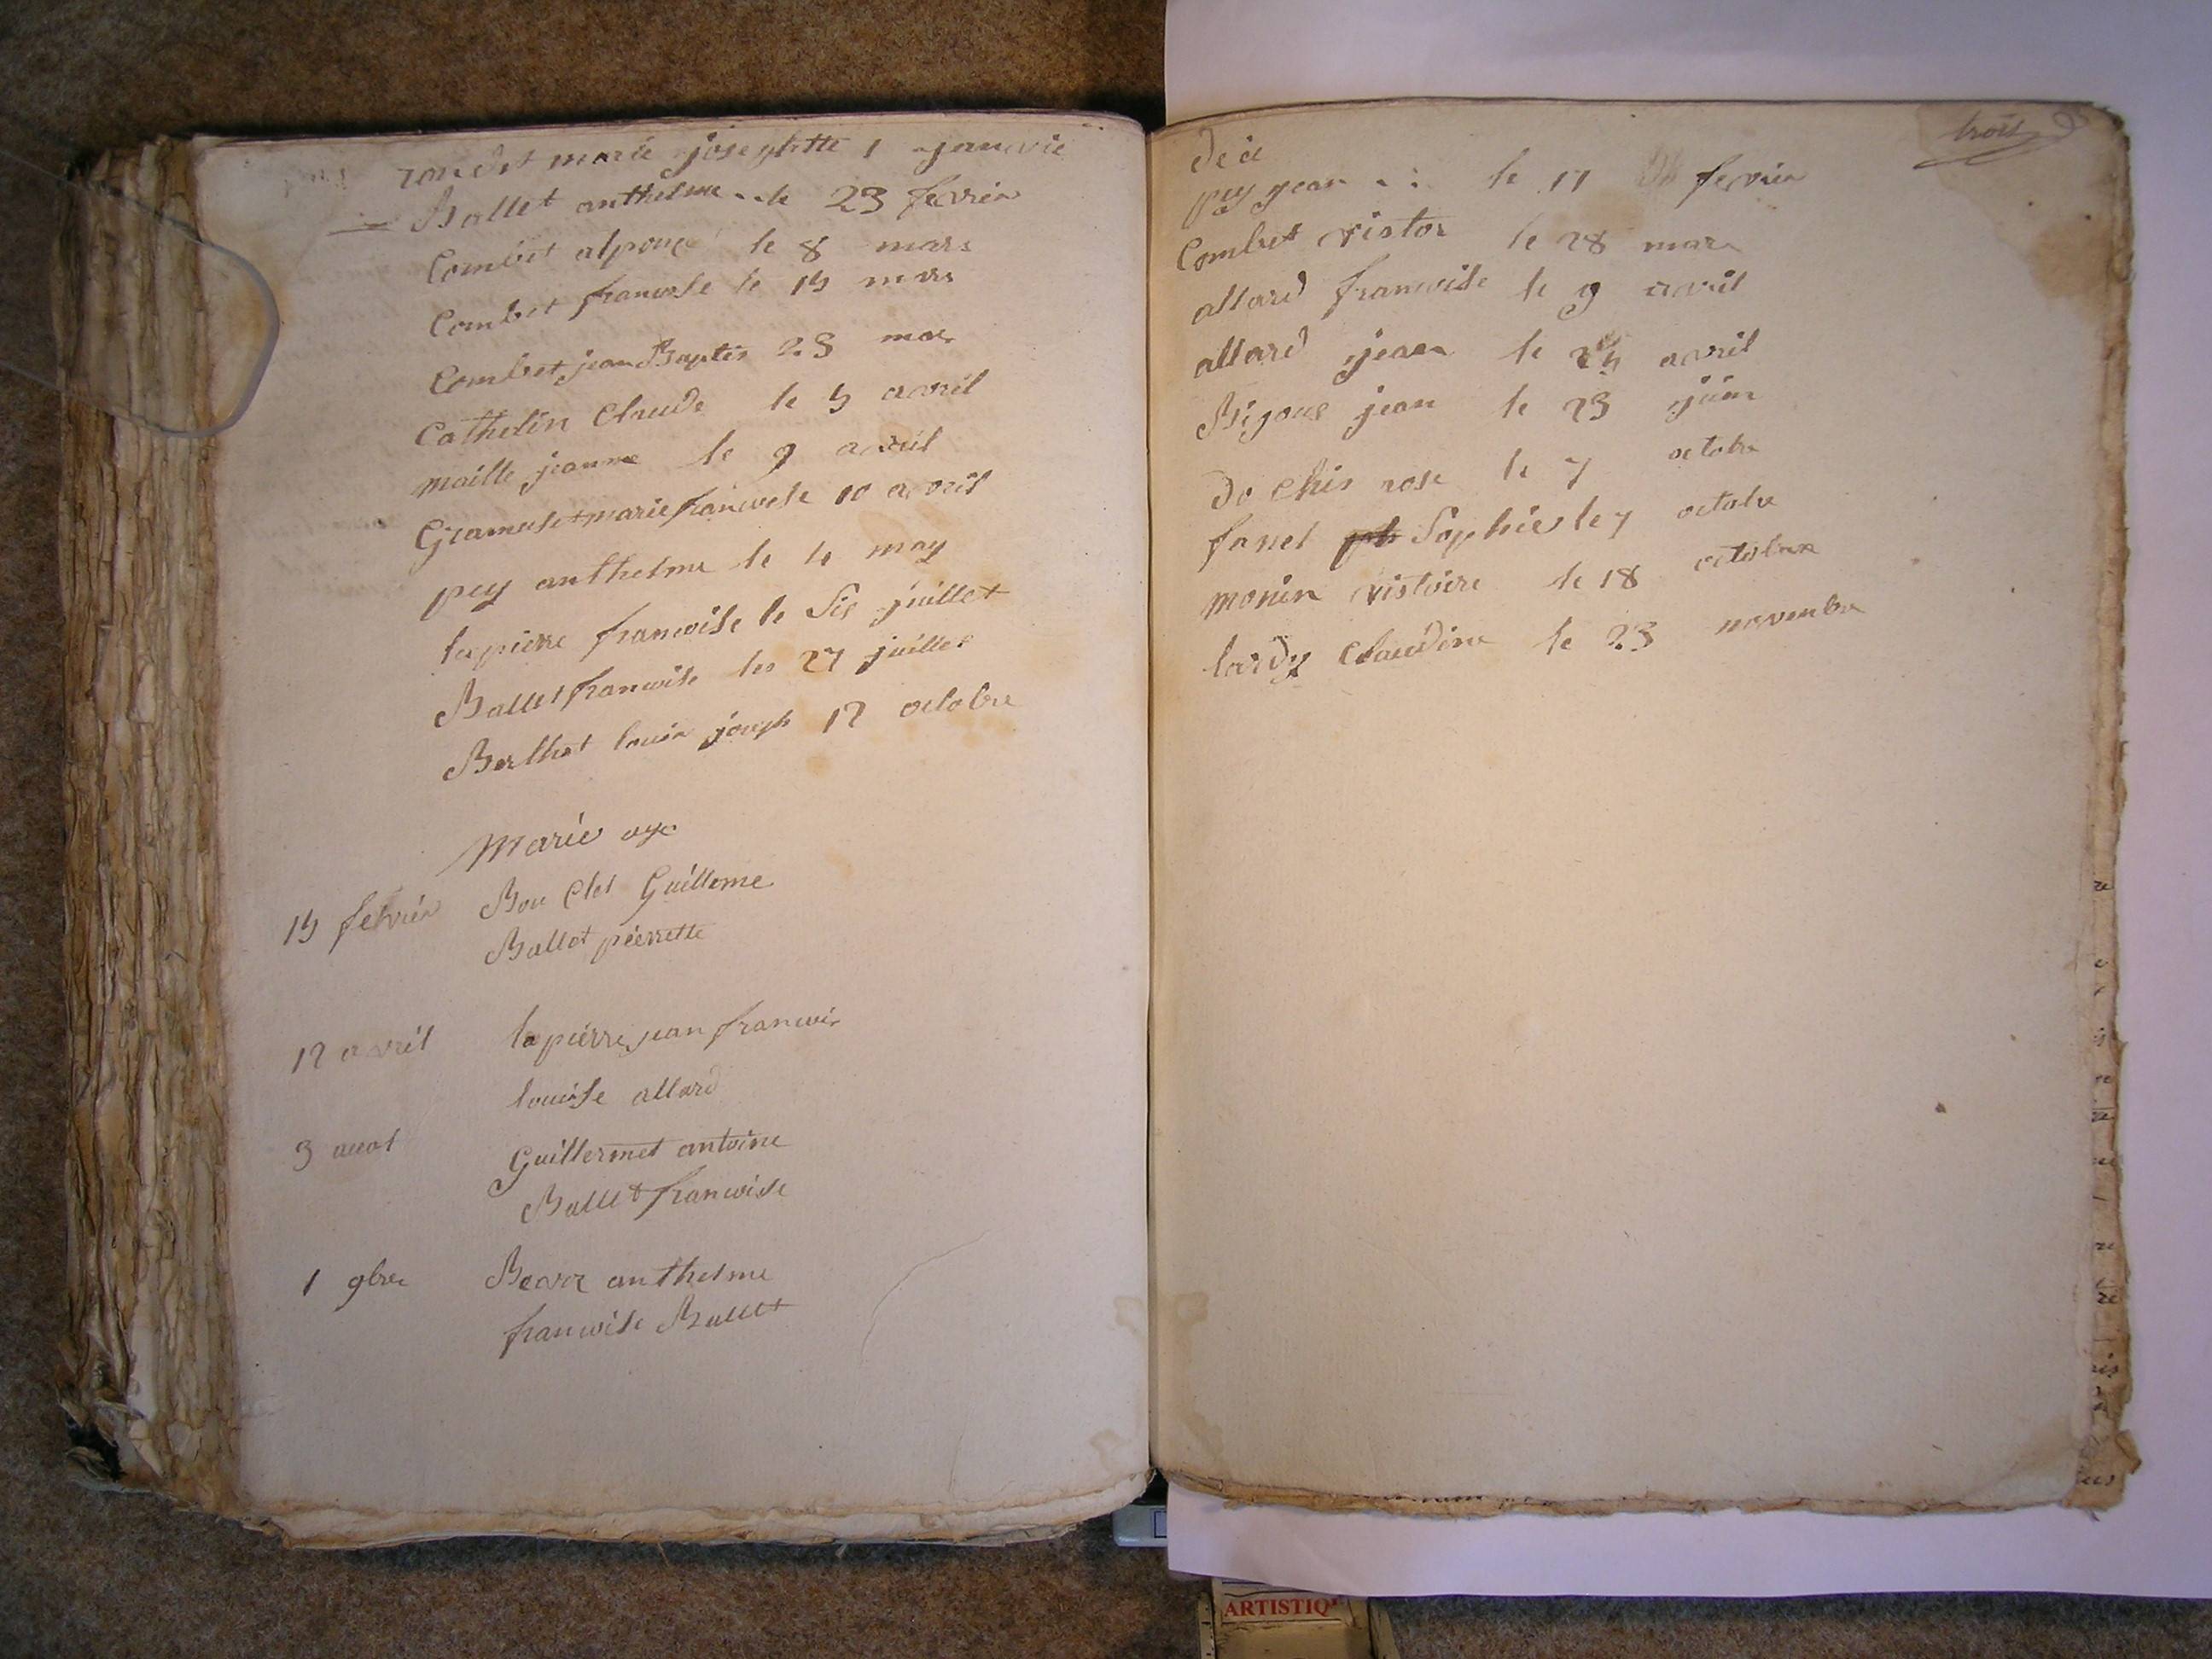 rondet marie josephtte 1 janvie
Ballet anthelme .. le 23 fevrier
Combet alponce le 8 mars
Combet francoise le 15 mars
Combet jean Baptis 23 mar
Cathelin Claude le 5 avril
maille jeanne le 9 avril
Gramuset marie francoise 10 avril
pey anthelme le 4 may
lapierre francoise le Sis juillet
Ballet francoise les 27 juillet
Berthet louis joseph 12 octobre
Marie age
15 fevrier Bou Chet Guilleme
Ballet pierrette
12 avril lapierre jean francois
louise allard
3 auot Guillermet antoine
Ballet francoise
1 9bre anthelme
francoise Ballet
trois
pey jean le 11 fevrier
Combet victor le 28 mars
allard francoise le 9 avril
allard jean le avril
jean le 23 juin
rose le 7 octobre
fanet Sophie le 7 octobre
monin victoire le 18 octobre
lardy Claudine le 23 novembre
ARTISTIQ